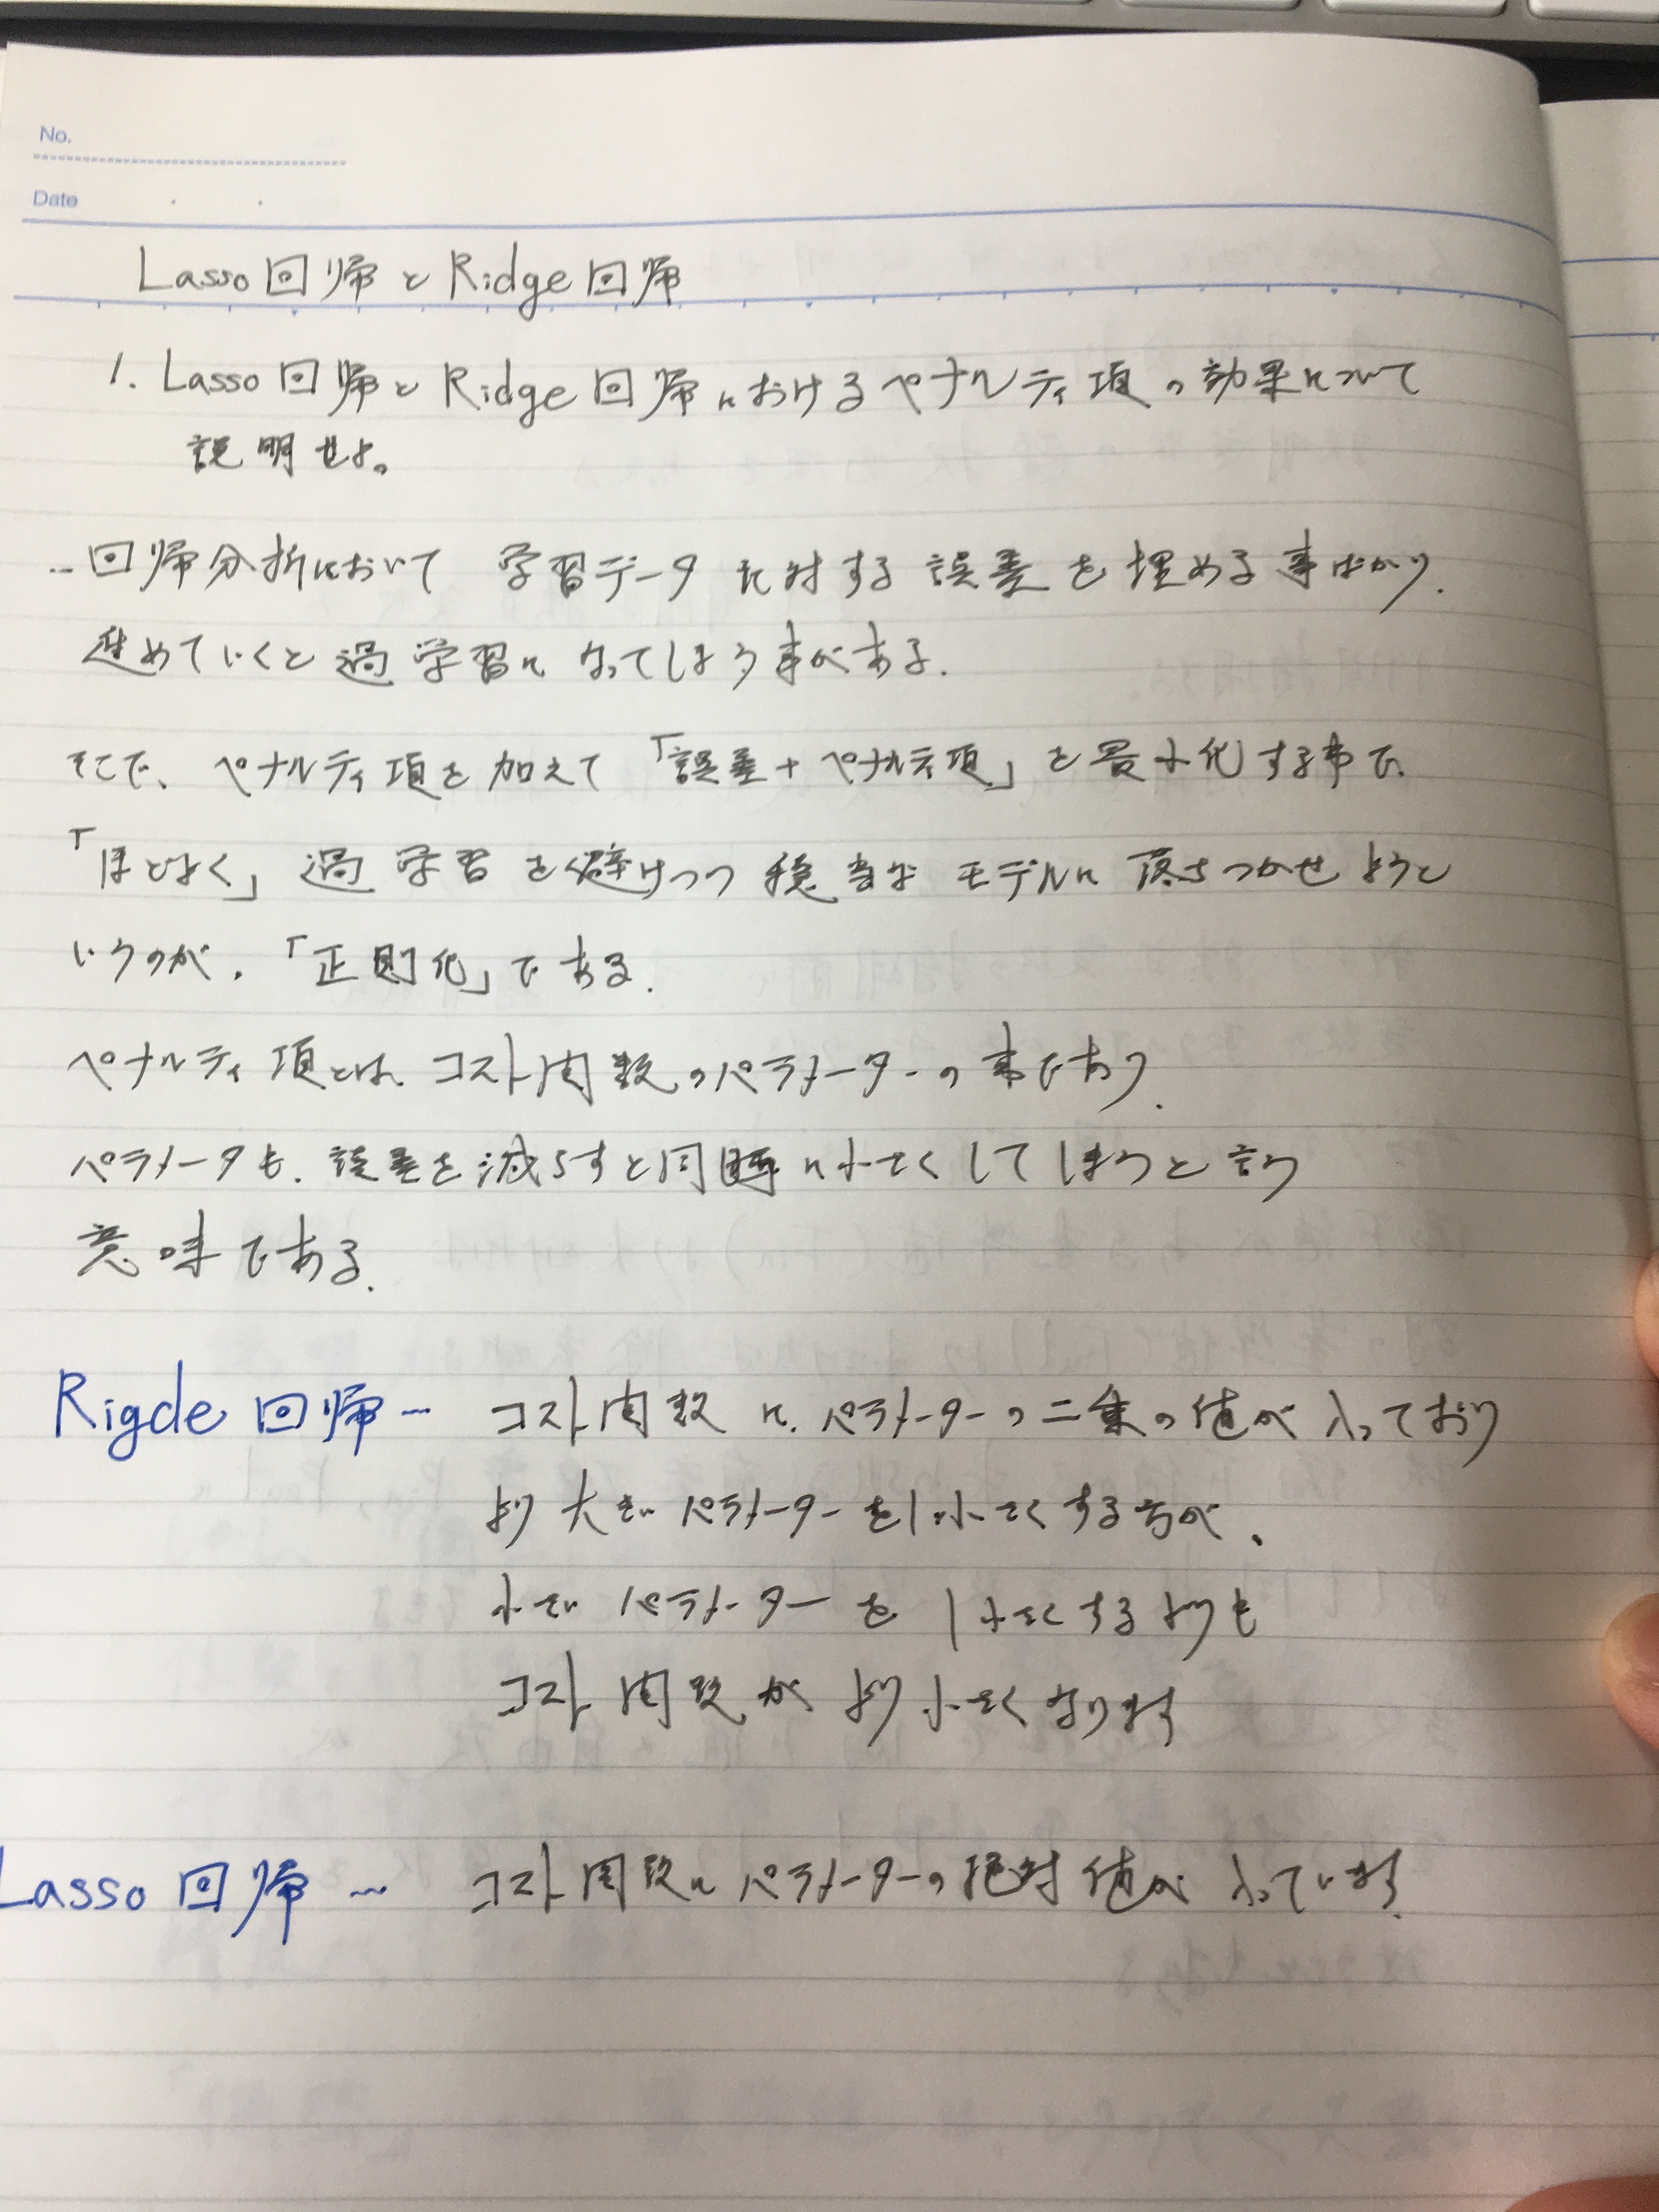 No.
Date
Lasso回帰とRidge回帰
1. Lasso回帰とRidge回帰におけるペナルティ項の効果について
説明せよ。
…回帰分析において 学習データに対する誤差を埋める事ばかり.
進めていくと過学習になってしまう事がある.
そこで、ペナルティ項を加えて「誤差+ペナルティ項」を最小化する事で、
「ほどよく」過学習を避けつつ穏当なモデルに落ちつかせようと
いうのが、「正則化」である.
ペナルティ項とは、コスト関数のパラメーターの事であり.
パラメータも、誤差を減らすと同時に小さくしてしまうと言う
意味である.
Rigde回帰… コスト関数に、パラメーターの二乗の値が入っており
より大きいパラメーターを1小さくする方が、
小さいパラメーターを1小さくするよりも
コスト関数がより小さくなります
Lasso回帰… コスト関数にパラメーターの絶対値が入っています.